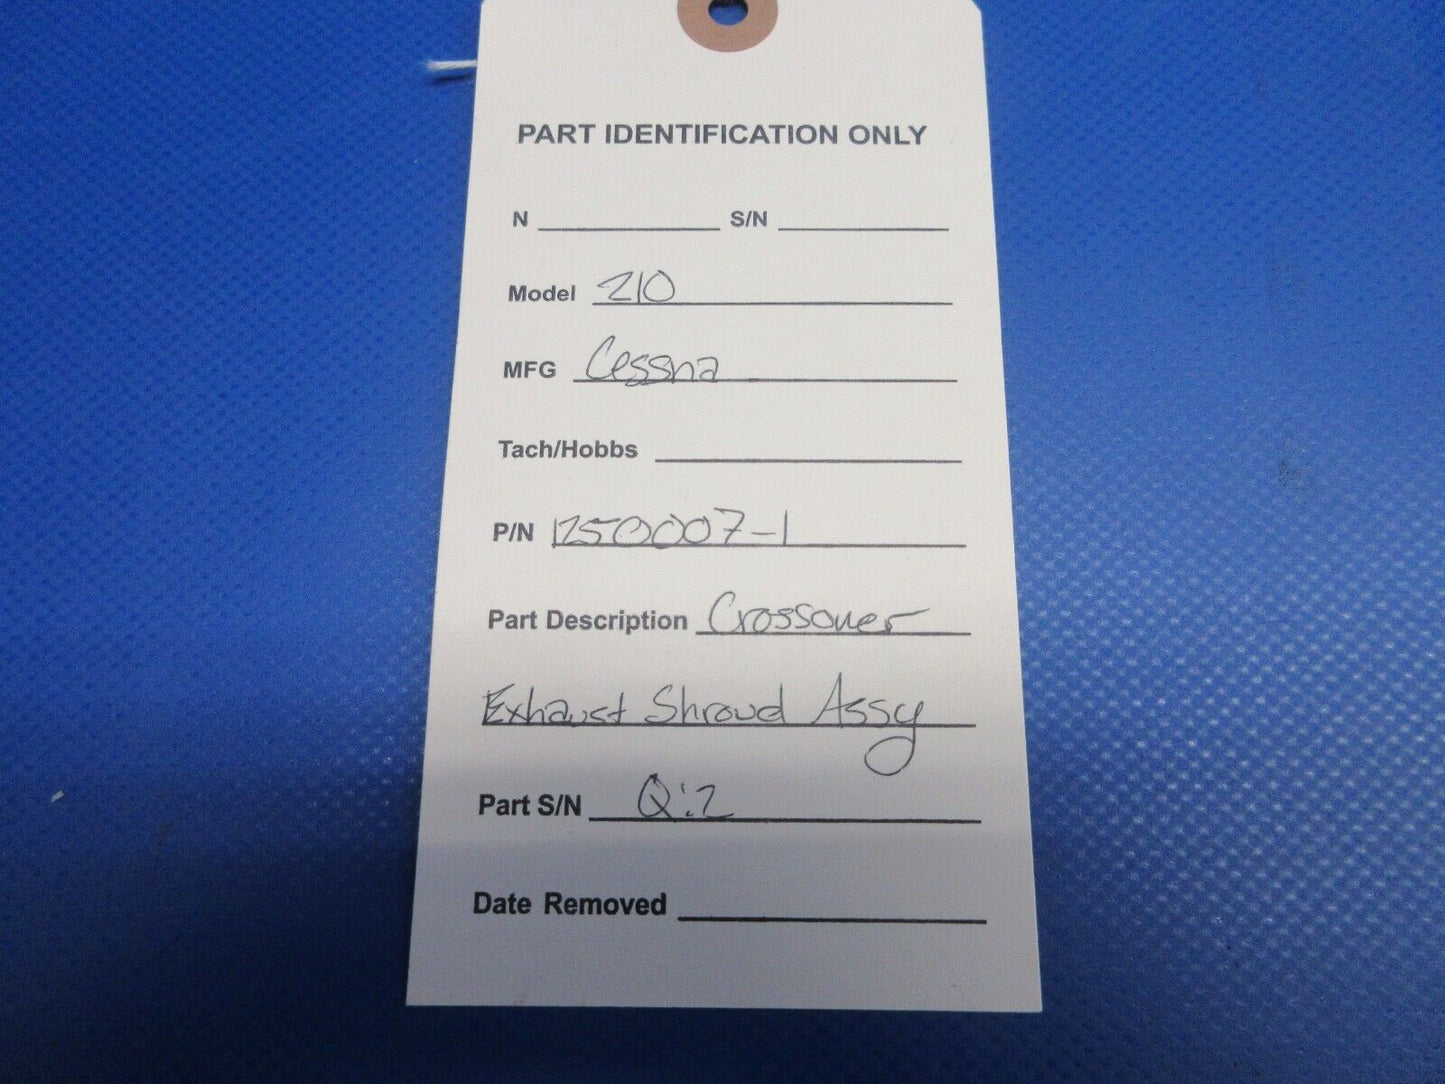 PART IDENTIFICATION ONLY
N S/N
Model 210
MFG Cessna
Tach/Hobbs
P/N 1250007-1
Part Description Crossover
Exhaust Shroud Assy
Part S/N Q:2
Date Removed